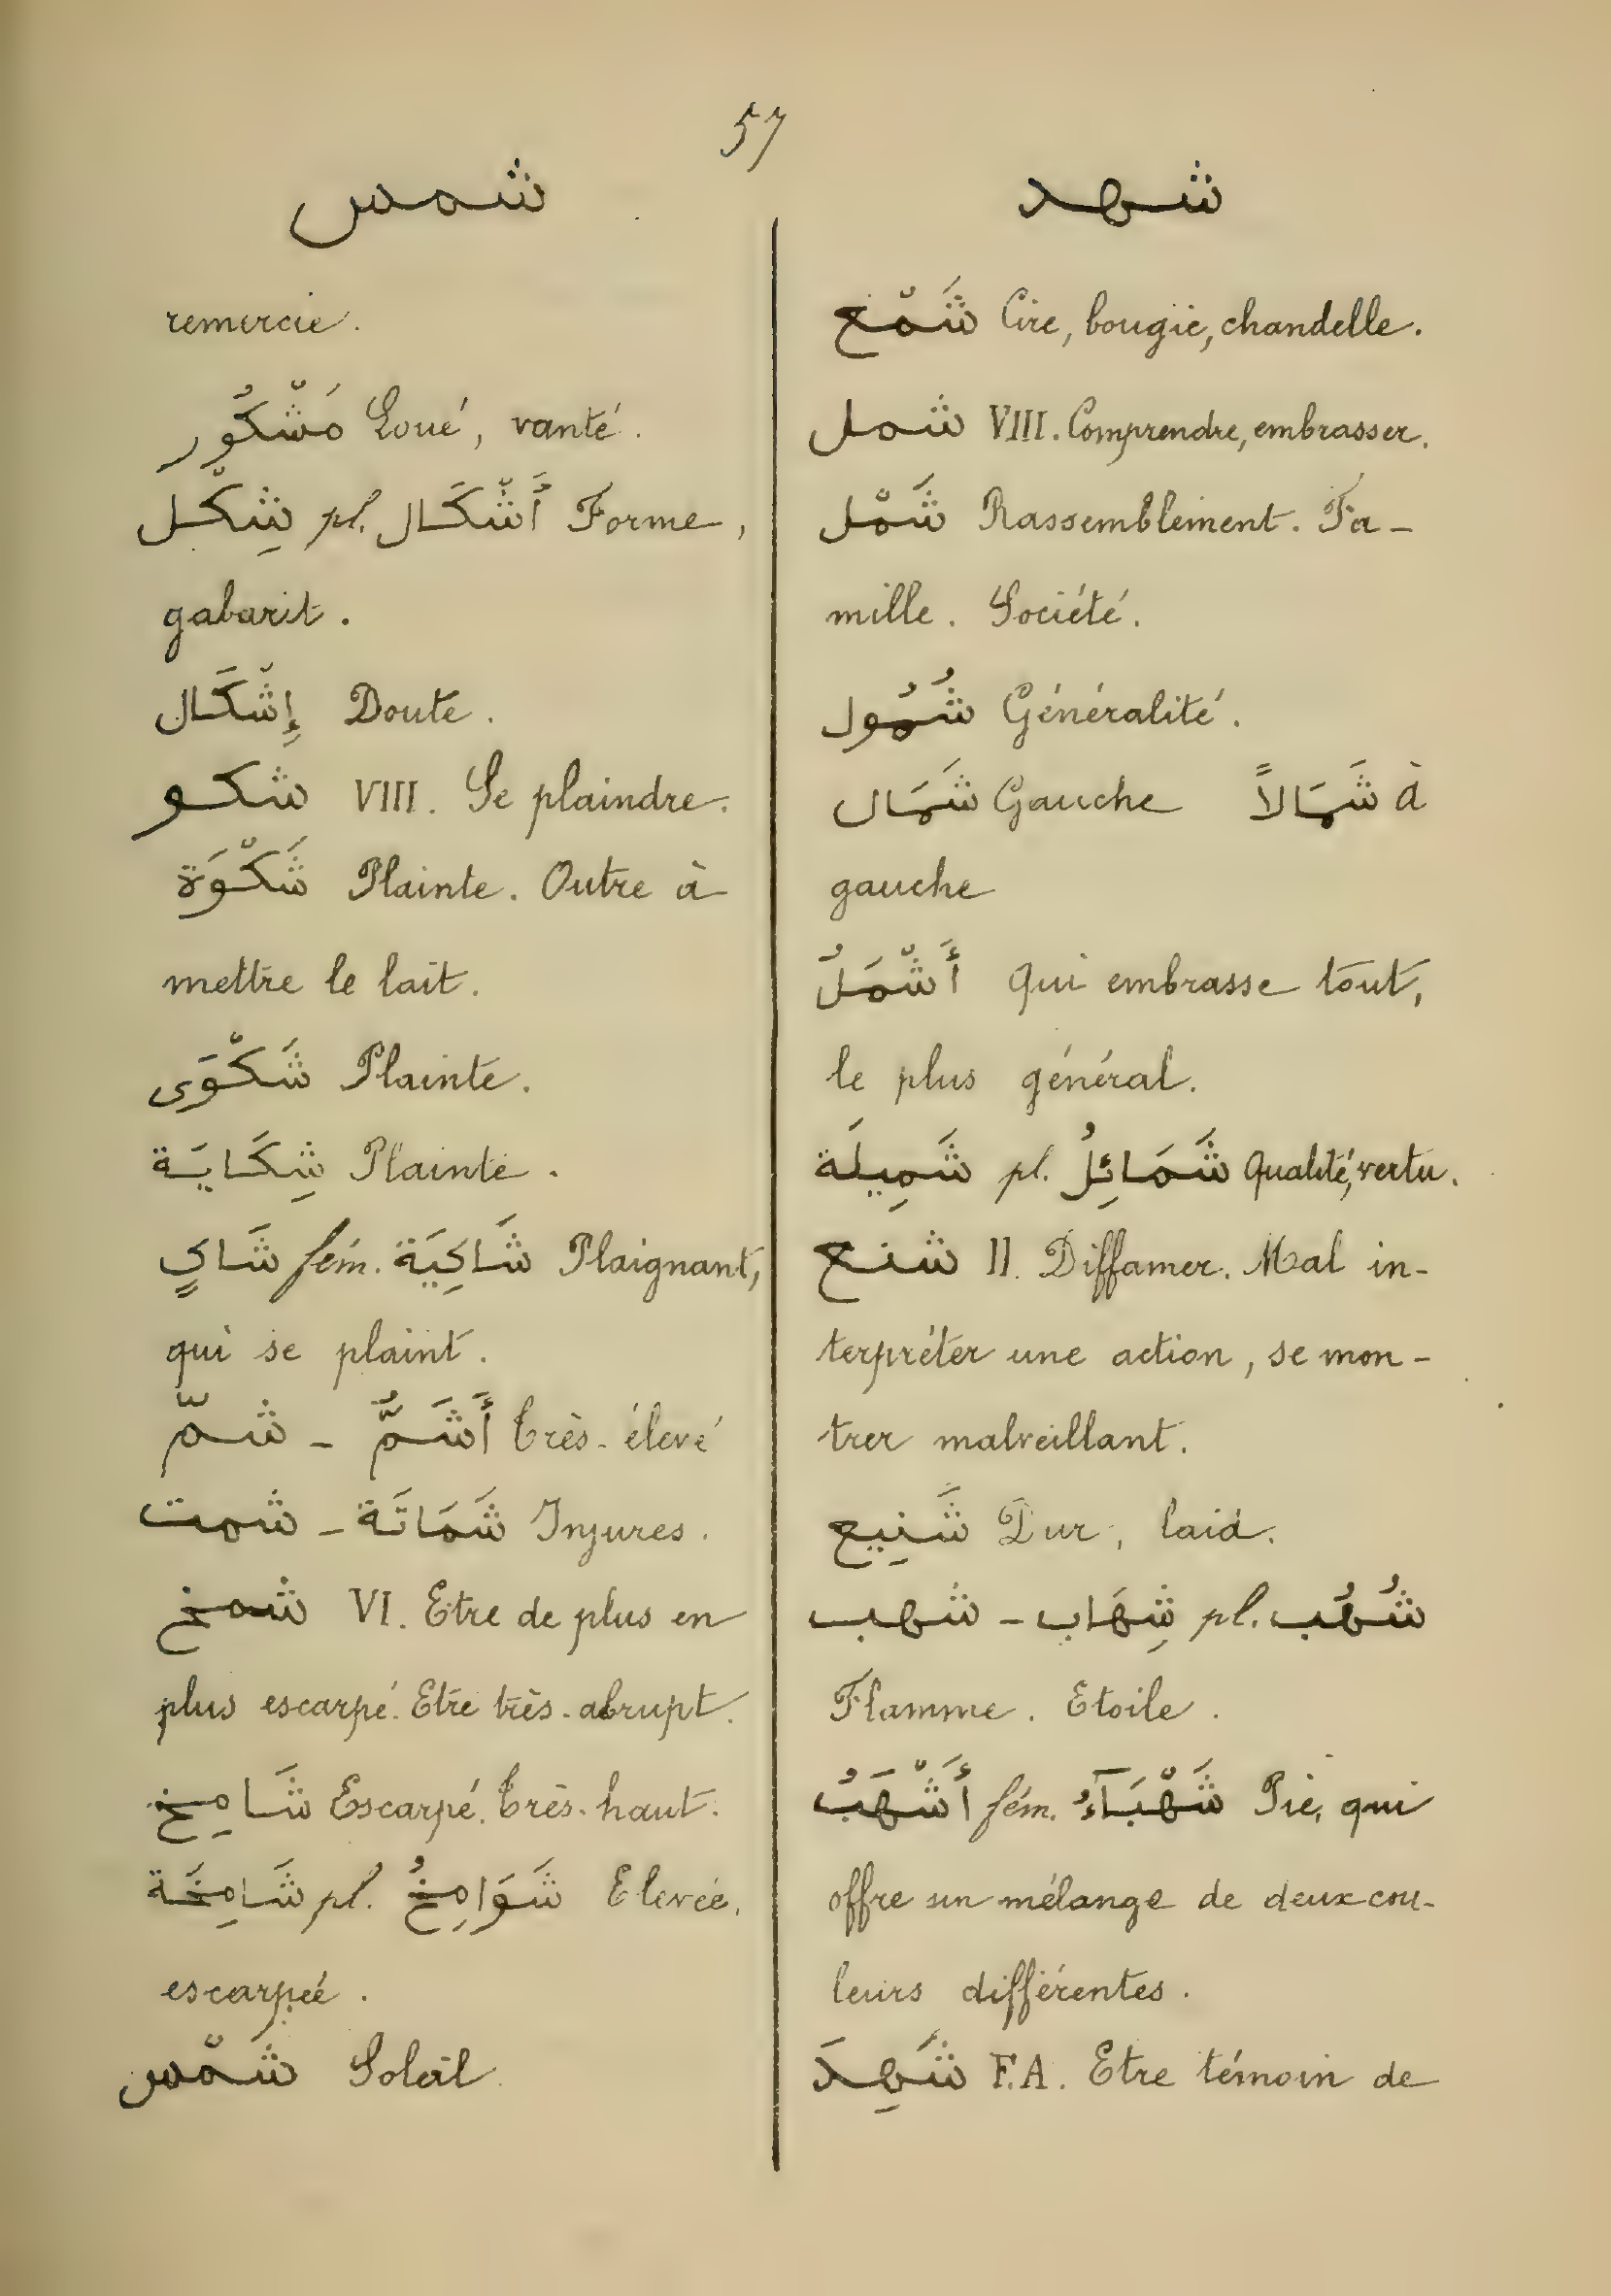 57
شمس
remercie.
مَشْكُور Loué, vanté.
شِكْل pl. أَشْكَال Forme,
gabarit.
إِشْكَال Doute.
شكو VIII. Se plaindre.
شَكْوَة Plainte. Outre à
mettre le lait.
شَكْوَى Plainte.
شِكَايَة Plainte.
شَاكٍ fém. شَاكِيَة Plaignant,
qui se plaint.
شمّ - أَشَمُّ très-élevé
شمت - شَمَاتَة Injures.
شمخ VI. Etre de plus en
plus escarpé. Etre très-abrupt.
شَامِخ Escarpé. très-haut.
شَامِخَة pl. شَوَامِخُ Elevée,
escarpée.
شَمْس Soleil
شهد
شَمْع Cire, bougie, chandelle.
شمل VIII. Comprendre, embrasser.
شَمْل Rassemblement. Fa-
mille. Société.
شُمُول Généralité.
شَمَال Gauche شَمَالاً à
gauche
أَشْمَلُ qui embrasse tout,
le plus général.
شَمِيلَة pl. شَمَائِلُ qualité, vertu.
شنع II. Diffamer. Mal in-
terpréter une action, se mon-
trer malveillant.
شَنِيع Dur, laid.
شهب - شِهَاب pl. شُهُب
Flamme. Etoile.
أَشْهَبُ fém. شَهْبَآءُ Pie, qui
offre un mélange de deux cou-
leurs différentes.
شَهِدَ F.A. Etre témoin de